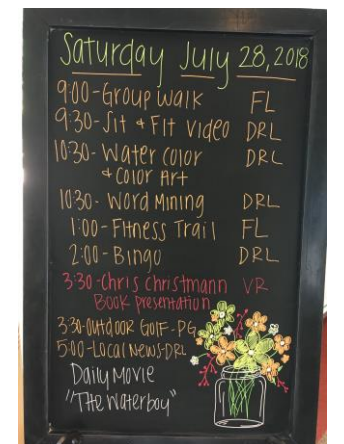 Saturday July 28, 2018
9:00-Group Walk FL
9:30-Sit & Fit Video DRL
10:30-Water Color DRL
& Color Art
10:30-Word Mining DRL
1:00-Fitness Trail FL
2:00-Bingo DRL
3:30-Chris Christmann VR
Book Presentation
3:30-Outdoor Golf-PG
5:00-Local News-DRL
Daily Movie
"The Waterboy"